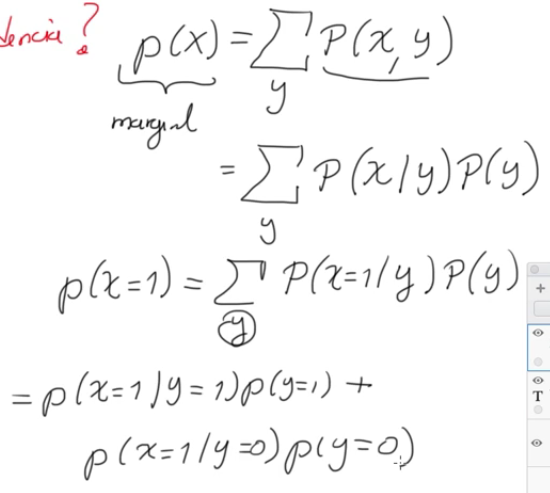 dencia?
p(x) = ∑ P(x,y)
y
marginal
= ∑ P(x/y)P(y)
y
p(x=1) = ∑ P(x=1/y)P(y)
y
= p(x=1/y=1)p(y=1) +
p(x=1/y=0)p(y=0)
T